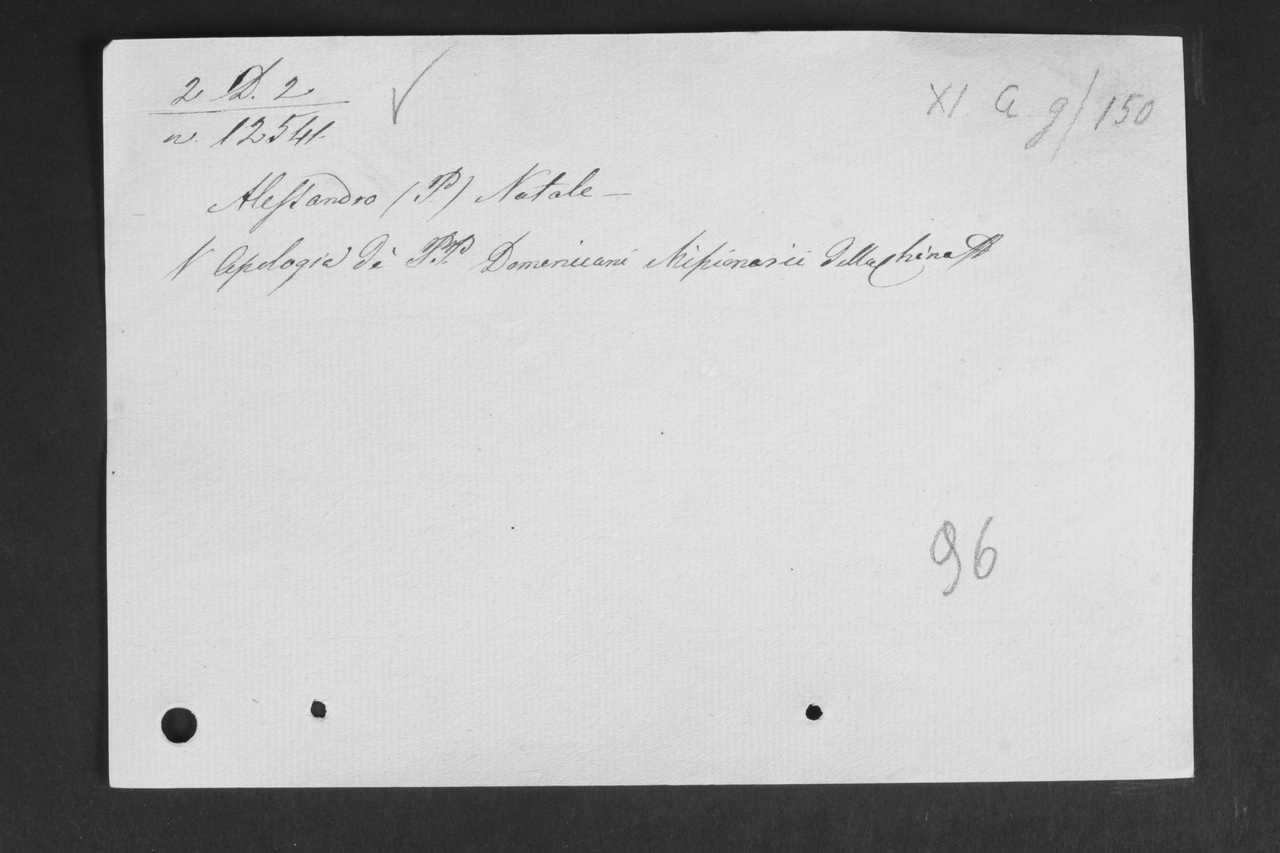 2 D. 2
XI a g/150
n. 12541.
Alessandro (P) Natale —
Apologia dè PP. Domenicani Missionarii della China
96